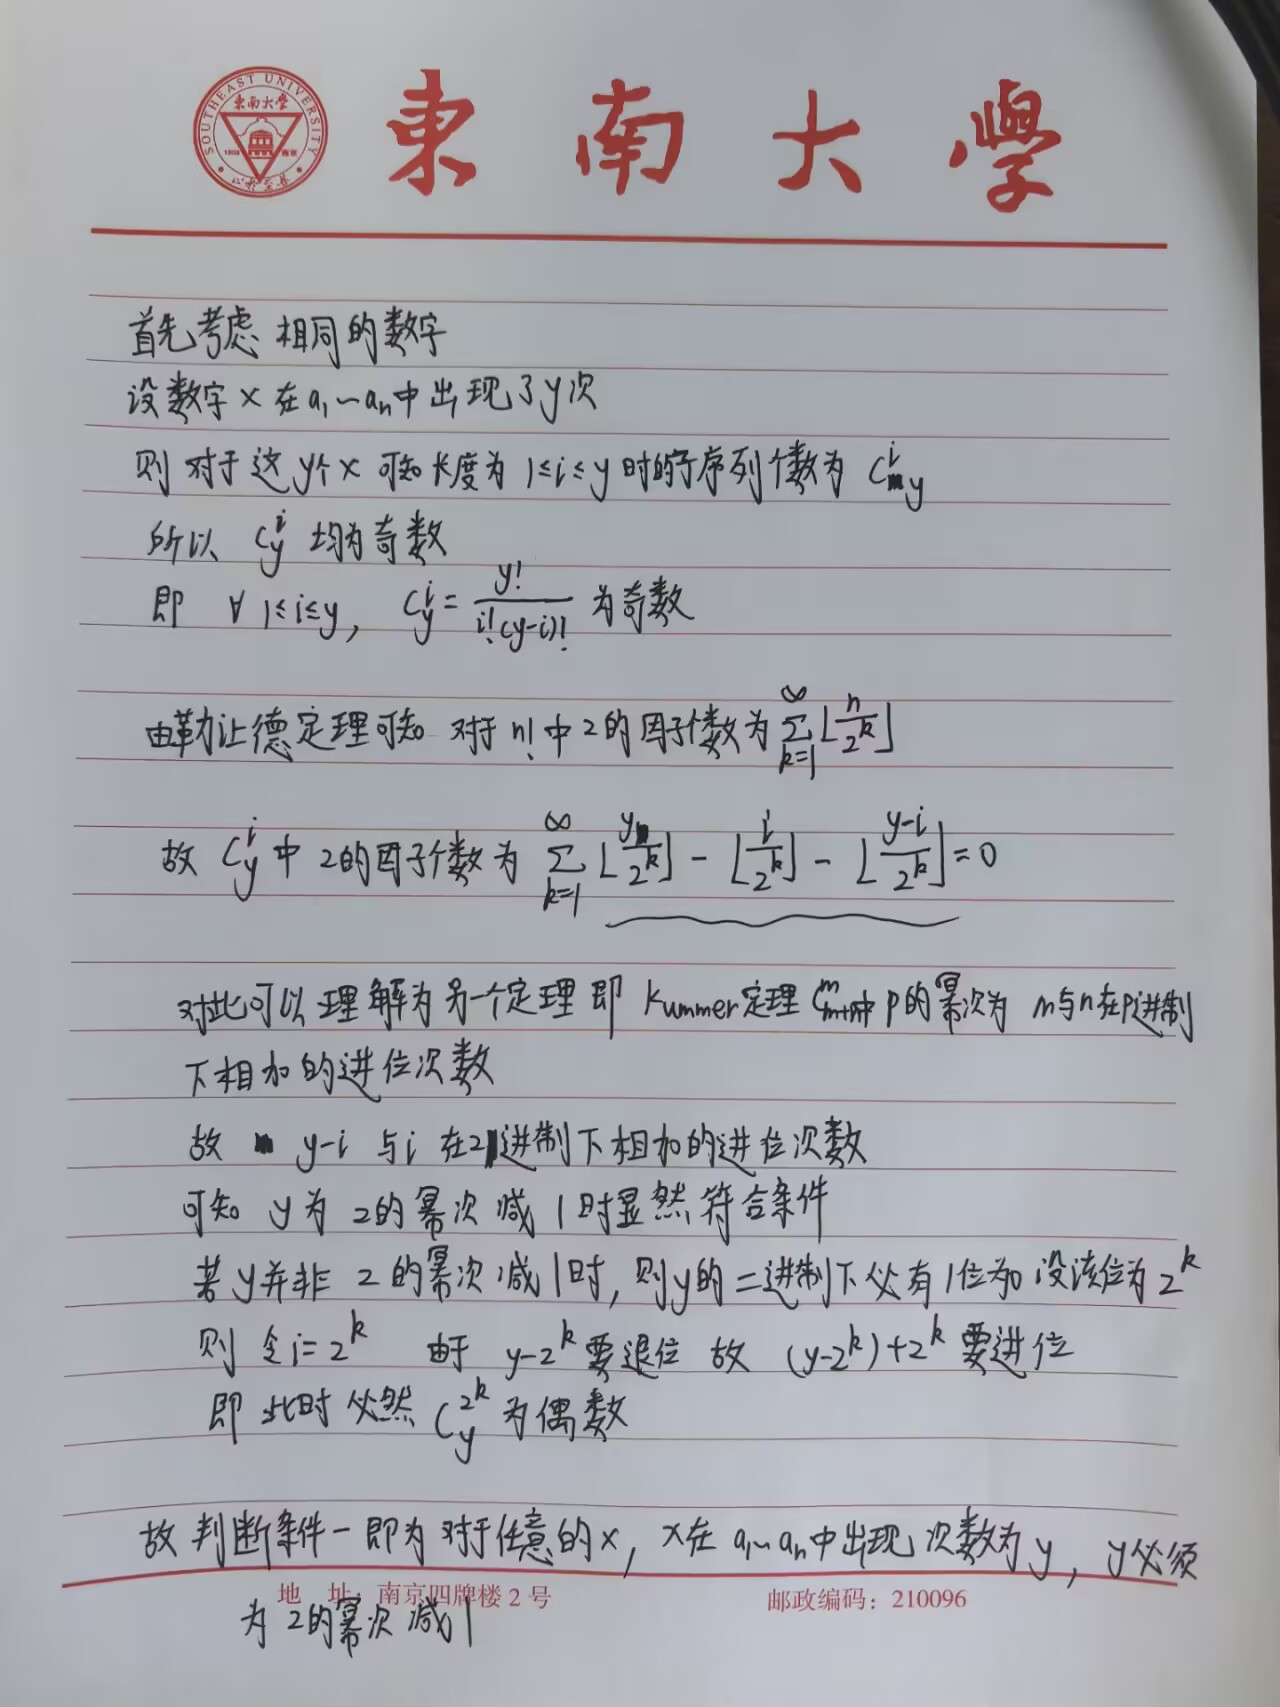 SOUTHEAST UNIVERSITY
東南大學
1902 南京
東南大學
首先考虑相同的数字
设数字x在a₁~aₙ中出现了y次
则对于这y个x可知长度为1≤i≤y时的子序列个数为 C_y^i
所以 C_y^i 均为奇数
即 ∀ 1≤i≤y, C_y^i = y!/(i!(y-i)!) 为奇数
由勒让德定理可知 对于n!中2的因子个数为 ∑_{k=1}^{∞} ⌊n/2^k⌋
故 C_y^i 中2的因子个数为 ∑_{k=1}^{∞} ⌊y/2^k⌋ - ⌊i/2^k⌋ - ⌊(y-i)/2^k⌋ = 0
对此可以理解为另一个定理即 Kummer定理 C_{m+n}^m中p的幂次为 m与n在p进制
下相加的进位次数
故 y-i 与i 在2进制下相加的进位次数
可知 y为 2的幂次减1时显然符合条件
若y并非2的幂次减1时,则y的二进制下必有1位为0 设该位为2^k
则令i=2^k 由于 y-2^k要退位 故 (y-2^k)+2^k要进位
即此时必然 C_y^{2^k} 为偶数
故判断条件一即为对于任意的x, x在a₁~aₙ中出现次数为y, y必须
地 址:南京四牌楼2号 邮政编码:210096
为2的幂次减1